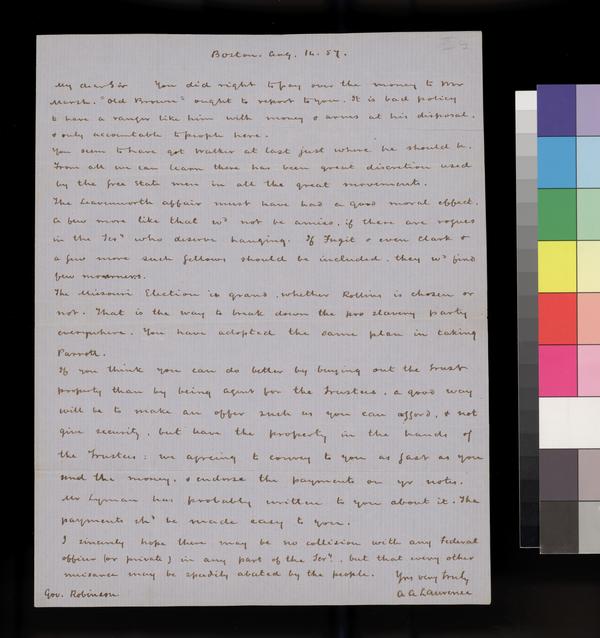 Boston. Aug. 14. 57.
My dear Sir You did right to pay over the money to Mr
Marsh. "Old Brown" ought to report to you. It is bad policy
to have a ranger like him with money & arms at his disposal,
& only accountable to people here.
You seem to have got Walker at last just where he should be.
From all we can learn there has been great discretion used
by the free State men in all the great movements.
The Leavenworth affair must have had a good moral effect.
A few more like that wd not be amiss, if there are rogues
in the Terr who deserve hanging. If Fugit & even Clark &
a few more such fellows should be included, they wd find
few mourners.
The Missouri Election is grand, whether Rollins is chosen or
not. That is the way to break down the pro slavery party
everywhere. You have adopted the same plan in taking
Parrott.
If you think you can do better by buying out the Trust
property than by being agent for the Trustees, a good way
will be to make an offer such as you can afford, & not
give security, but have the property in the hands of
the Trustees: we agreeing to convey to you as fast as you
send the money, & endorse the payments on yr notes.
Mr Lyman has probably written to you about it. The
payments shd be made easy to you.
I sincerely hope there may be no collision with any Federal
officer (or private) in any part of the Terry, but that every other
nuisance may be speedily abated by the people. Yrs very truly
Gov. Robinson A A Lawrence